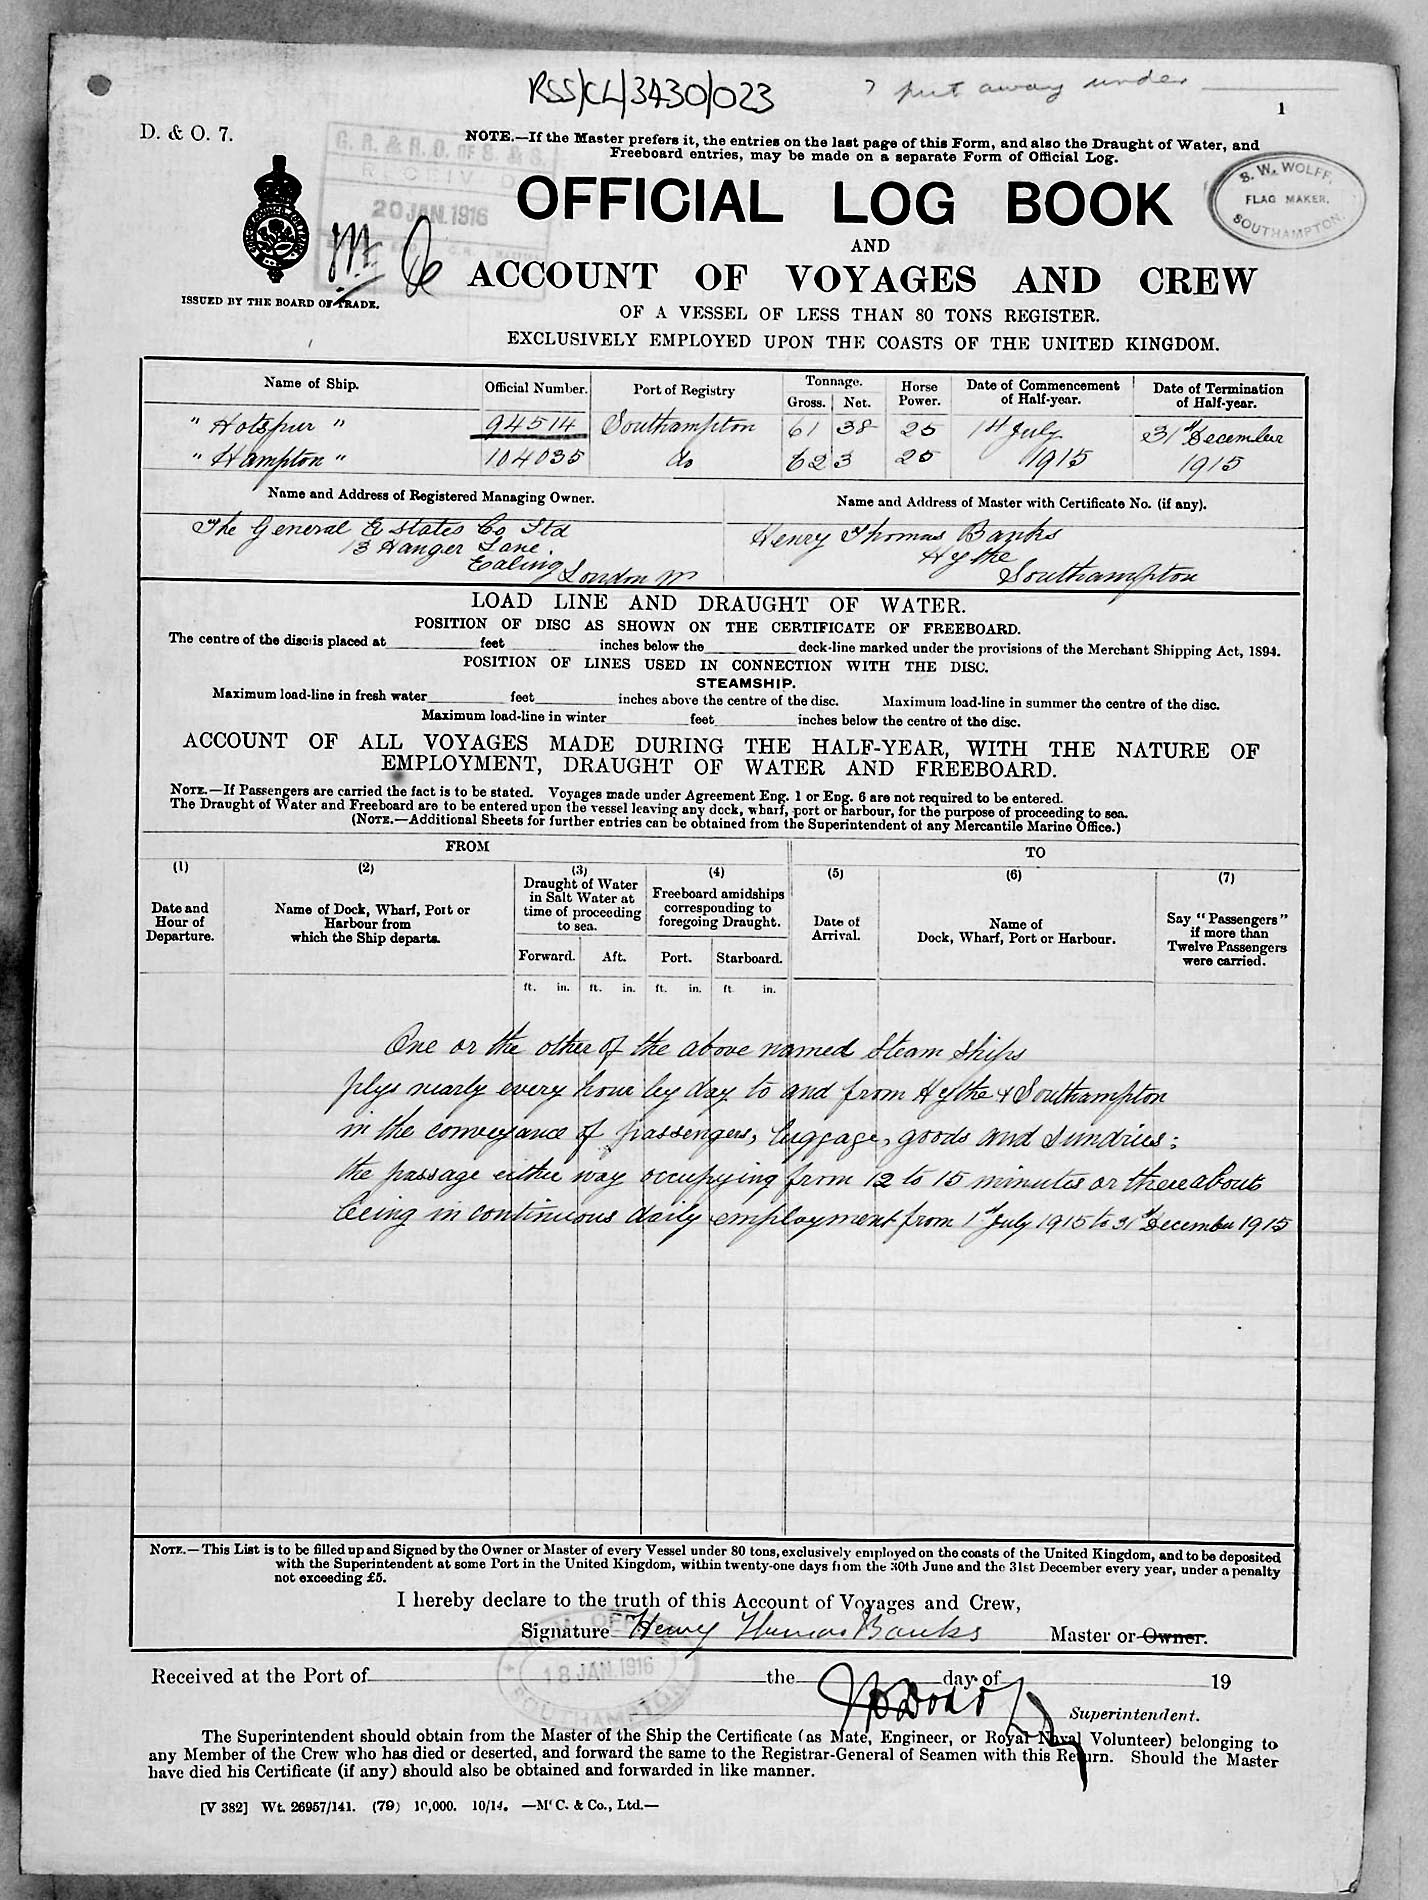 RSS/CL/3430/023
? put away under
1
D. & O. 7.
NOTE.—If the Master prefers it, the entries on the last page of this Form, and also the Draught of Water, and
Freeboard entries, may be made on a separate Form of Official Log.
G. R. & R. O. OF S. & S.
20 JAN. 1916
S. W. WOLFF,
FLAG MAKER,
SOUTHAMPTON.
OFFICIAL LOG BOOK
AND
ACCOUNT OF VOYAGES AND CREW
ISSUED BY THE BOARD OF TRADE.
OF A VESSEL OF LESS THAN 80 TONS REGISTER.
EXCLUSIVELY EMPLOYED UPON THE COASTS OF THE UNITED KINGDOM.
Name of Ship. Official Number. Port of Registry Tonnage. Gross. Net. Horse Power. Date of Commencement of Half-year. Date of Termination of Half-year.
" Hotspur " 94514 Southampton 61 38 25 1st July 31st December
" Hampton " 104035 do 62 3 25 1915 1915
Name and Address of Registered Managing Owner. Name and Address of Master with Certificate No. (if any).
The General Estates Co Ltd Henry Thomas Banks
13 Hanger Lane. Hythe
Ealing London W Southampton
LOAD LINE AND DRAUGHT OF WATER.
POSITION OF DISC AS SHOWN ON THE CERTIFICATE OF FREEBOARD.
The centre of the disc is placed at feet inches below the deck-line marked under the provisions of the Merchant Shipping Act, 1894.
POSITION OF LINES USED IN CONNECTION WITH THE DISC.
STEAMSHIP.
Maximum load-line in fresh water feet inches above the centre of the disc. Maximum load-line in summer the centre of the disc.
Maximum load-line in winter feet inches below the centre of the disc.
ACCOUNT OF ALL VOYAGES MADE DURING THE HALF-YEAR, WITH THE NATURE OF
EMPLOYMENT, DRAUGHT OF WATER AND FREEBOARD.
NOTE.—If Passengers are carried the fact is to be stated. Voyages made under Agreement Eng. 1 or Eng. 6 are not required to be entered.
The Draught of Water and Freeboard are to be entered upon the vessel leaving any dock, wharf, port or harbour, for the purpose of proceeding to sea.
(NOTE.—Additional Sheets for further entries can be obtained from the Superintendent of any Mercantile Marine Office.)
FROM TO
(1) (2) (3) (4) (5) (6) (7)
Date and Hour of Departure.
Name of Dock, Wharf, Port or Harbour from which the Ship departs.
Draught of Water in Salt Water at time of proceeding to sea.
Freeboard amidships corresponding to foregoing Draught.
Date of Arrival.
Name of Dock, Wharf, Port or Harbour.
Say "Passengers" if more than Twelve Passengers were carried.
Forward. Aft. Port. Starboard.
ft. in. ft. in. ft. in. ft. in.
One or the other of the above named Steam Ships
plys nearly every hour by day to and from Hythe & Southampton
in the conveyance of passengers, luggage, goods and sundries;
the passage either way occupying from 12 to 15 minutes or thereabouts
being in continuous daily employment from 1st July 1915 to 31st December 1915
NOTE.—This List is to be filled up and Signed by the Owner or Master of every Vessel under 80 tons, exclusively employed on the coasts of the United Kingdom, and to be deposited
with the Superintendent at some Port in the United Kingdom, within twenty-one days from the 30th June and the 31st December every year, under a penalty
not exceeding £5.
I hereby declare to the truth of this Account of Voyages and Crew,
Signature Henry Thomas Banks Master or Owner.
18 JAN. 1916
SOUTHAMPTON
Received at the Port of the day of 19
Superintendent.
The Superintendent should obtain from the Master of the Ship the Certificate (as Mate, Engineer, or Royal Naval Volunteer) belonging to
any Member of the Crew who has died or deserted, and forward the same to the Registrar-General of Seamen with this Return. Should the Master
have died his Certificate (if any) should also be obtained and forwarded in like manner.
[V 382] Wt. 26957/141. (79) 10,000. 10/14. —McC. & Co., Ltd.—